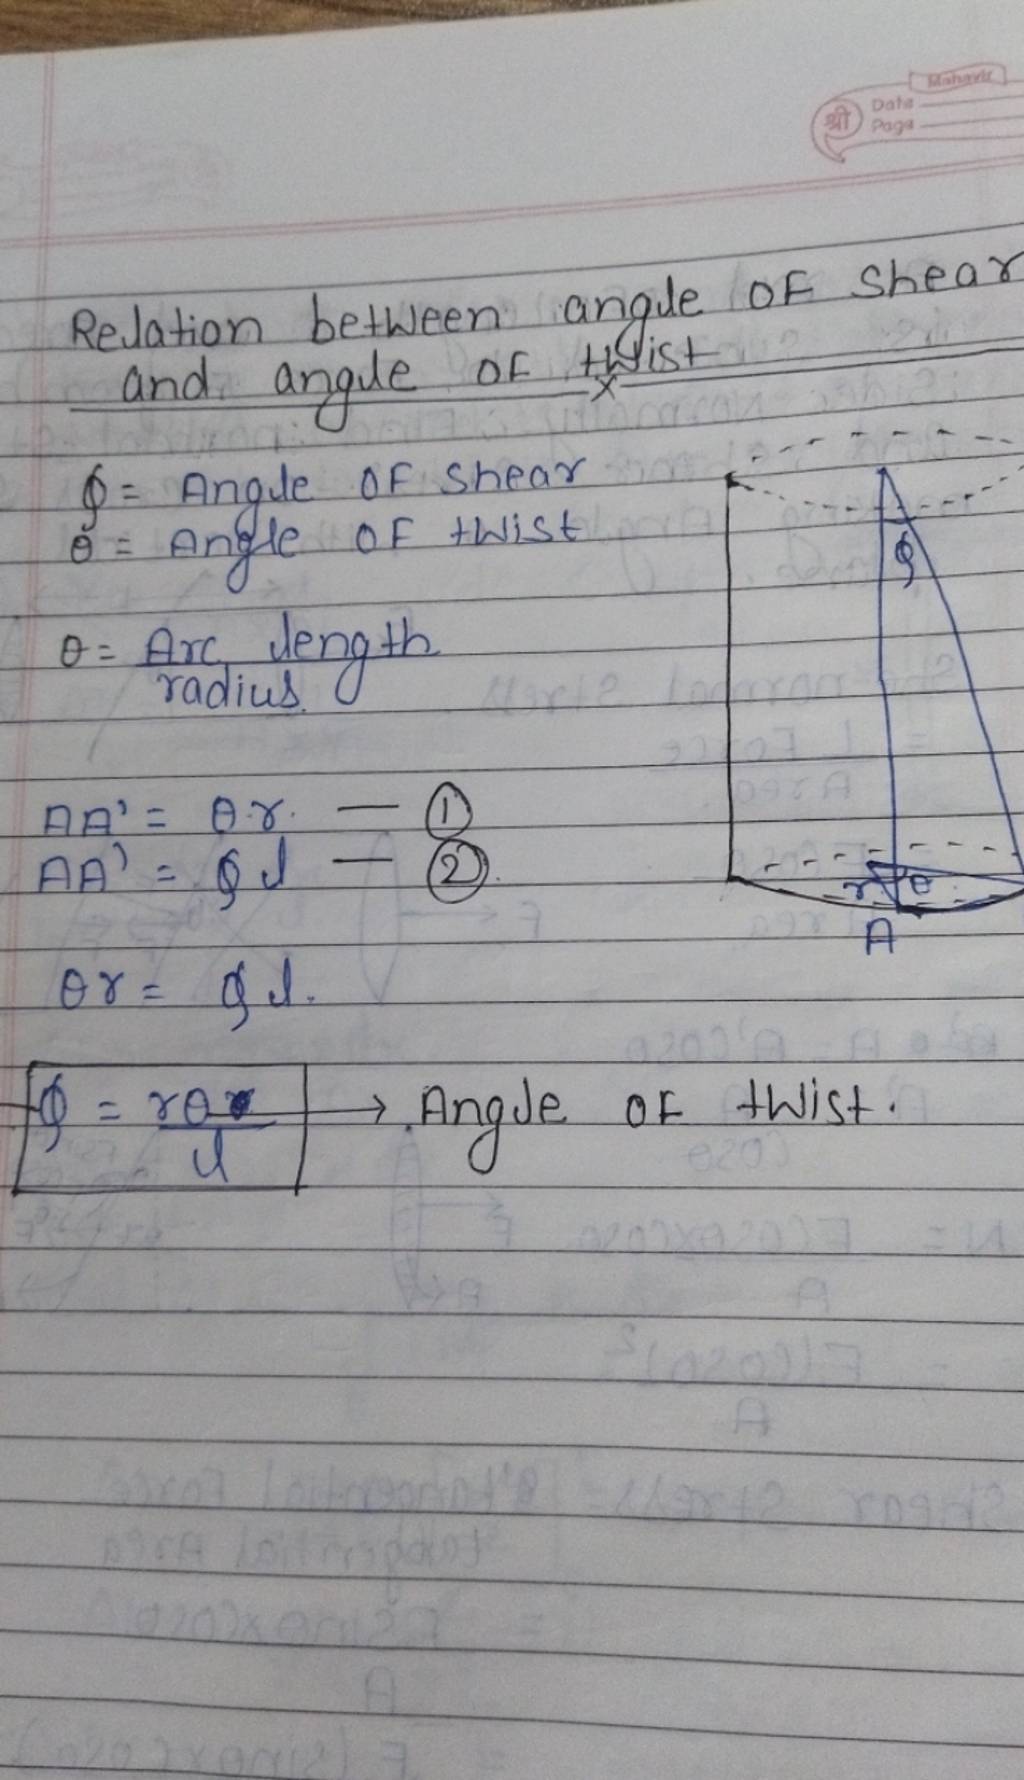 Mahavir
श्री
Date
Page
Relation between angle of shear
and angle of twist
ϕ = Angle of shear
θ = Angle of twist
ϕ
θ = Arc length
radius.
AA' = θ.r. — ①
AA' = ϕ l — ②.
r θ
A
θr = ϕ l.
ϕ = rθ
l
→ Angle of twist.